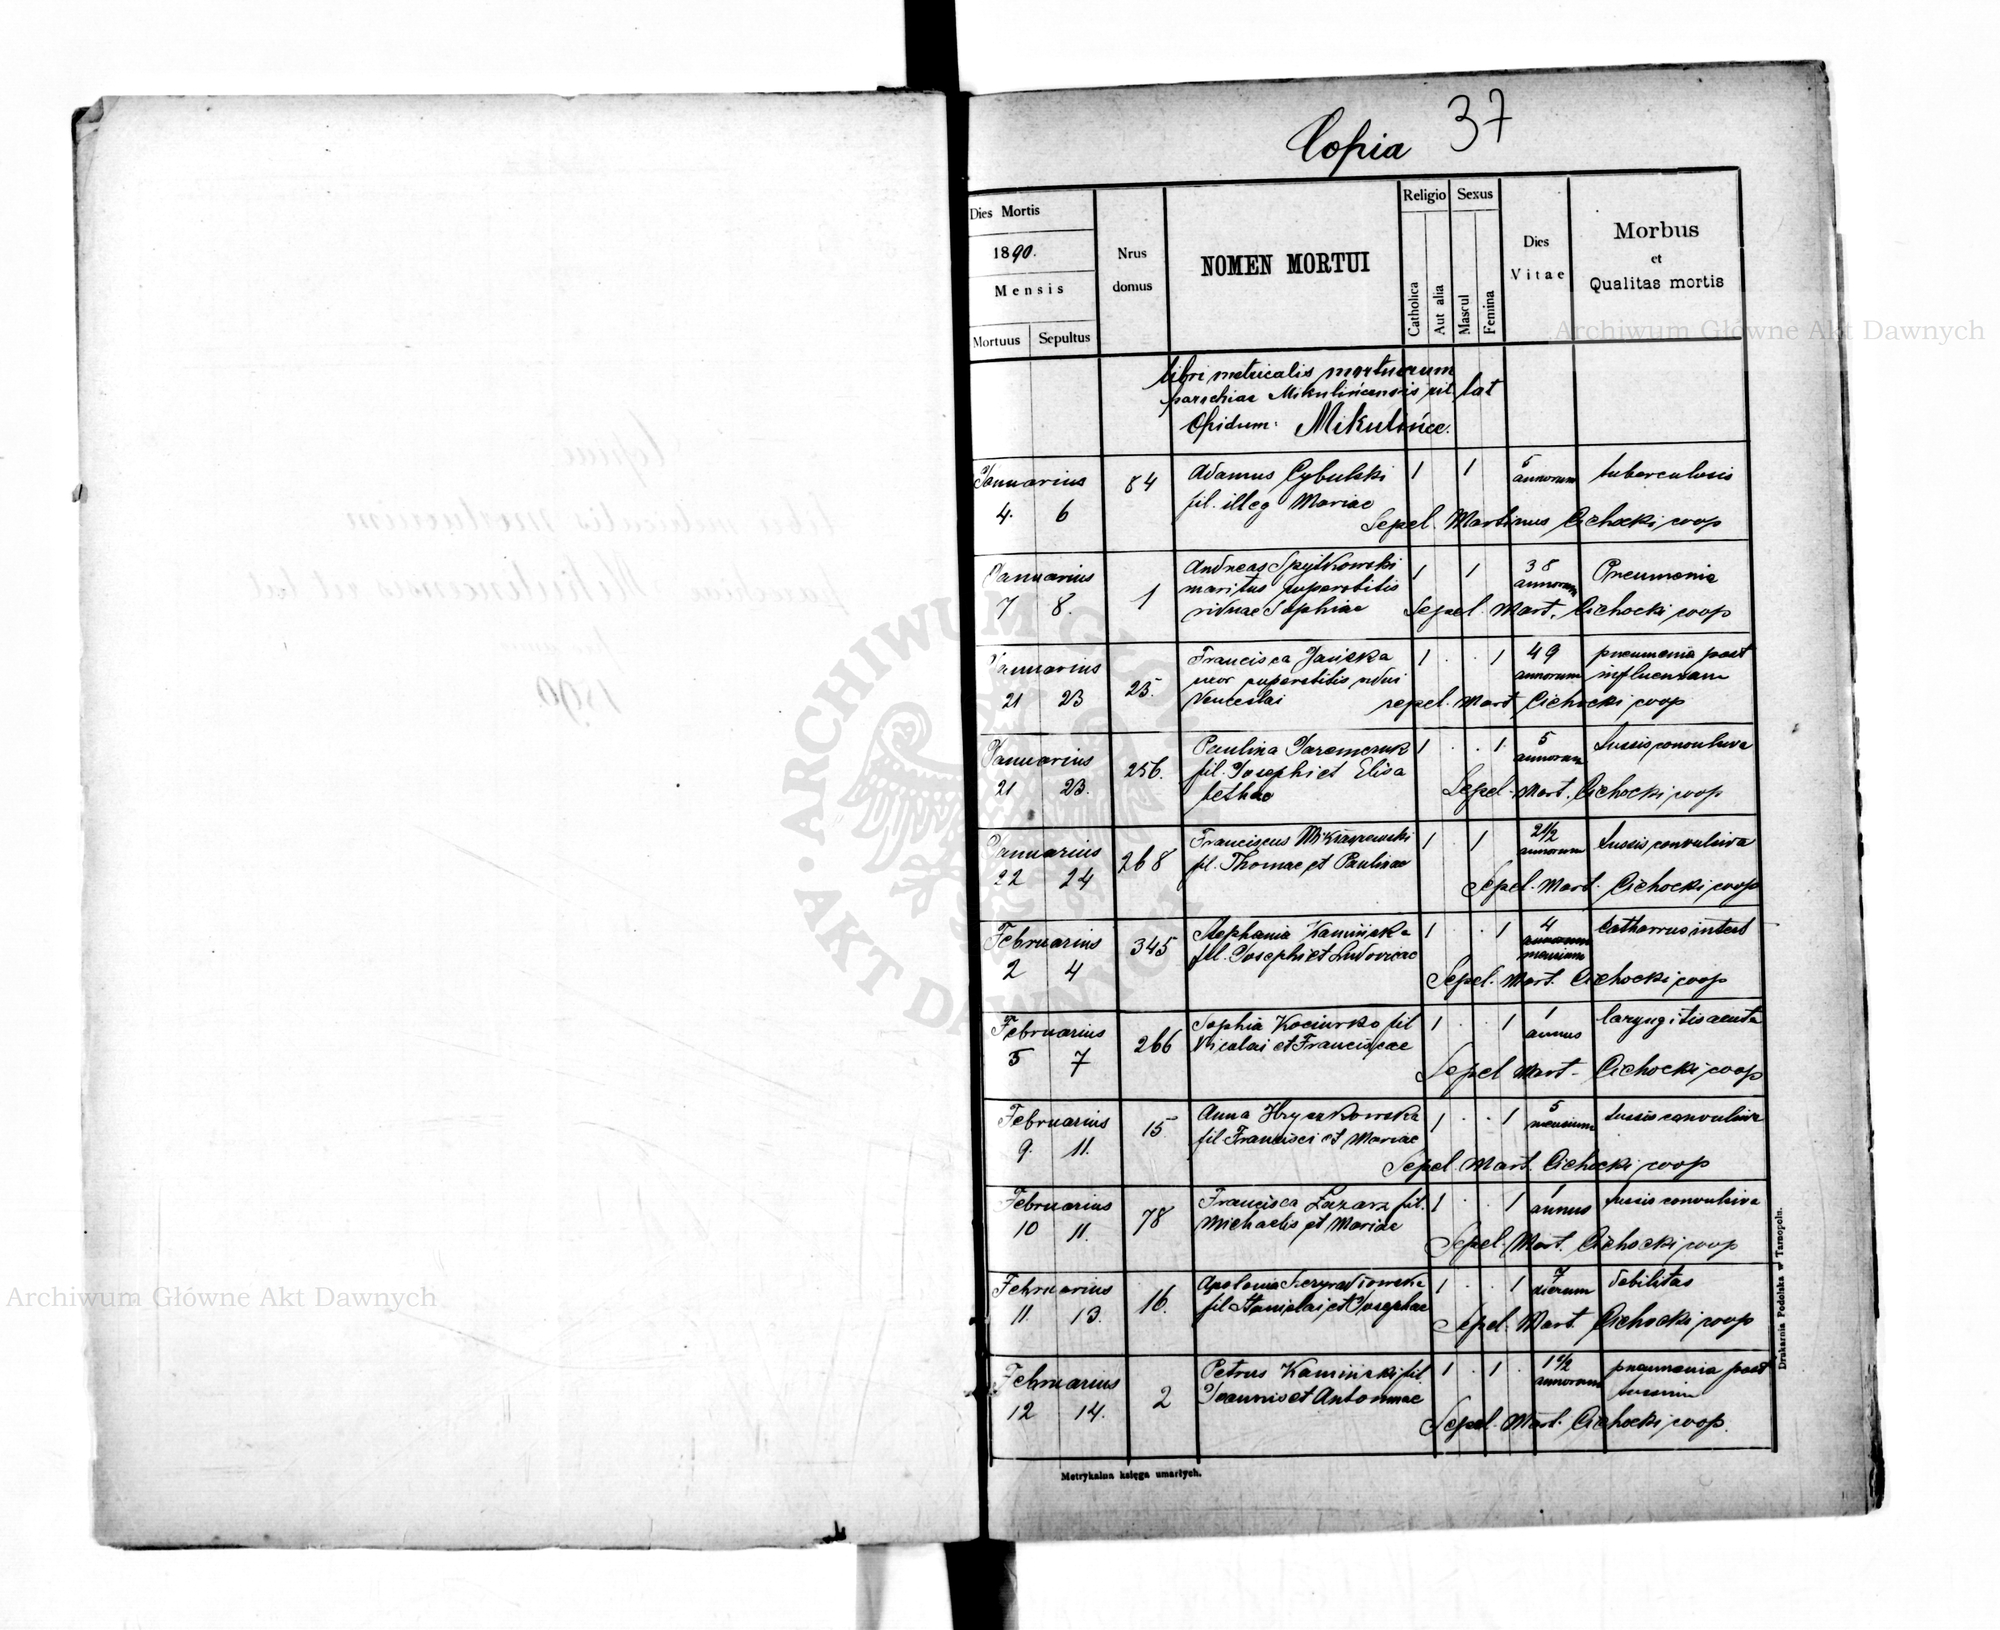 Copia 37
Dies Mortis
1890.
Mensis
Mortuus Sepultus
Nrus
domus
NOMEN MORTUI
Religio
Catholica
Aut alia
Sexus
Mascul
Fenina
Dies
Vitae
Morbus
et
Qualitas mortis
libri metricalis mortuorum
parochiae Mikulińcensis rit. lat
Opidum: Mikulińce.
Januarius 84 Adamus Cybulski 1 1 5 annorum tuberculosis
4. 6 fil. illeg Mariae
Sepel. Martinus Cichocki coop
Januarius 1 Andreas Spytkowski 1 1 38 annorum Pneumonia
7 8. maritus superstitis
viduae Sophiae Sepel. Mart. Cichocki coop
Januarius 25. Francisca Jańska 1 . . 1 49 annorum pneumonia post
21 23 uxor superstitis vidui influenzam
Venceslai sepel. Mart Cichocki coop
Januarius 256. Paulina Jaremczuk 1 . . 1 5 annorum tussis convulsiva
21 23. fil. Josephi et Elisa
bethae Sepel. Mart. Cichocki coop
Januarius 268 Franciscus 1 . 1 2 1/2 annorum tussis convulsiva
22 24 fil. Thomae et Paulinae
Sepel. Mart. Cichocki coop
Februarius 345 Stephania Kamińska 1 . . 1 4 mensium Catharrus intest
2 4 fil. Josephi et Ludovicae
Sepel. Mart. Cichocki coop
Februarius 266 Sophia Kociurko fil 1 . . 1 1 annus laryngitis acuta
5 7 Nicolai et Franciscae
Sepel Mart - Cichocki coop
Februarius 15 Anna Hryszkowska 1 . . 1 5 mensium tussis convulsiva
9. 11. fil Francisci et Mariae
Sepel. Mart. Cichocki coop
Februarius 78 Francisca Łazarz fil. 1 . . 1 1 annus tussis convulsiva
10 11. Michaelis et Mariae
Sepel. Mart. Cichocki coop
Februarius 16. Apolonia 1 . . 1 7 dierum debilitas
11 13. fil Stanislai et Josephae
Sepel. Mart. Cichocki coop
Februarius 2 Petrus Kamiński fil. 1 . 1 . 1 1/2 annorum pneumonia post
12 14. Joannis et Antoninae tussim
Sepel. Mart. Cichocki coop.
Metrykalna księga umarłych.
Drukarnia Podolska w Tarnopolu.
Archiwum Główne Akt Dawnych
Archiwum Główne Akt Dawnych
ARCHIWUM GŁÓWNE AKT DAWNYCH